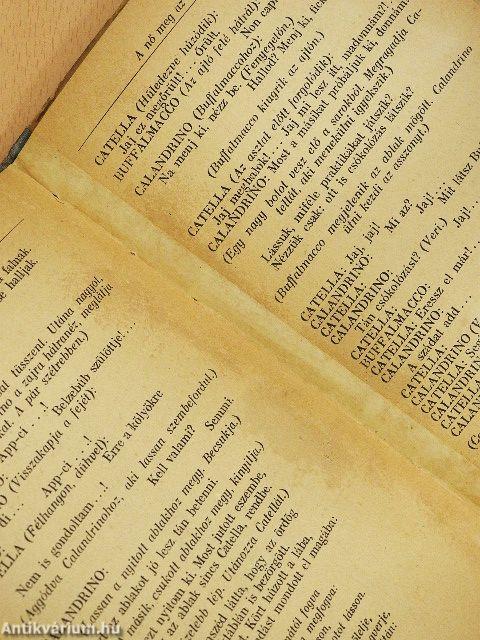 falnak
e hallják.
at tüsszent. Utána nagyot,
no a zajra hátranéz, meglátja
kat. A pár szétrebben.)
App-ci . . .! Belzebúb szülöttje!. . .
O (Visszakapja a fejét):
di . . . App-ci . . .!
ELLA (Félhangon, dühvel): Erre a kölyökre
Nem is gondoltam. . .!
Aggódva Calandrinohoz, aki lassan szembefordul.)
Kell valami?
ANDRINO: Semmi.
lassan a nyitott ablakhoz megy. Becsukja.)
ablakot jó lesz tán betenni.
másik, csukott ablakhoz megy, kinyitja.)
ezt nyitom ki. Most jutott eszembe,
az ablak sincs Catella, rendbe.
zetebb lép. Utánozza Catellát.)
szséd látta, hogy az ördög
táblán is bezörgött.
t. Kört húzott a lába,
latást mondott el magába:
A nő meg az
CATELLA (Hüledezve húzódik):
Jaj ez megőrült! . . . Őrült,
BUFFALMACCO (Az ajtó felé hátrál):
Non cap
CALANDRINO (Buffalmaccohoz): (Fenyegetőn.)
Na menj ki, nézz be. Hallod? Menj ki, fick
(Buffalmacco kiugrik az ajtón.)
CATELLA (Az asztal előtt forgolódik):
Jaj megbabolt! . . . Jaj mi lesz itt, madonnám?!
CALANDRINO: Most a másikat próbáljuk ki, donnám
(Egy nagy botot vesz elő a sarokból. Megragadja Ca-
tellát, aki menekülni igyekszik.)
Lássuk, miféle praktikákat játszik?
Nézzük csak: ott is csókolózás látszik?
(Buffalmacco megjelenik az ablak mögött. Calandrino
ütni kezdi az asszonyt.)
CATELLA: Jaj, jaj!
CALANDRINO: Mi az?
CATELLA: Jaj! . . .
CALANDRINO: Mit látsz Bu
Tán csókolózást? (Veri.)
CATELLA: Jaj!. . .
BUFFALMACCO:
CALANDRINO: Eressz el már!. . .
A szódat add . . .
CATELLA:
CALANDRINO (V
CATELLA: Sem
CALANDRINO
CATELLA:
Antikvárium.hu